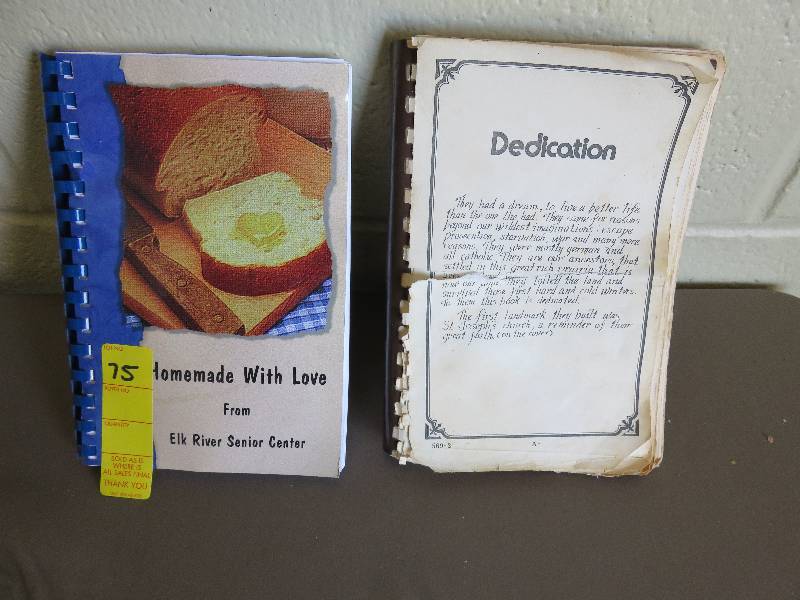 Homemade With Love
From
Elk River Senior Center
LOT NO.
75
QUANTITY
SOLD AS IS
WHERE IS
ALL SALES FINAL
THANK YOU
Dedication
They had a dream, to live a better life
than the one the had. They came for reasons
beyond our wildest imaginations: escape
prosecution, starvation, war and many more
reasons. They were mostly german and
all catholic. They are our ancestors, that
settled in this great rich prairie that is
now our home. They tilled the land and
survived there first hard and cold winters.
To them this book is dedicated.
The first landmark they built was
St. Joseph's church, a reminder of their
great faith. (on the cover)
569-2
A-